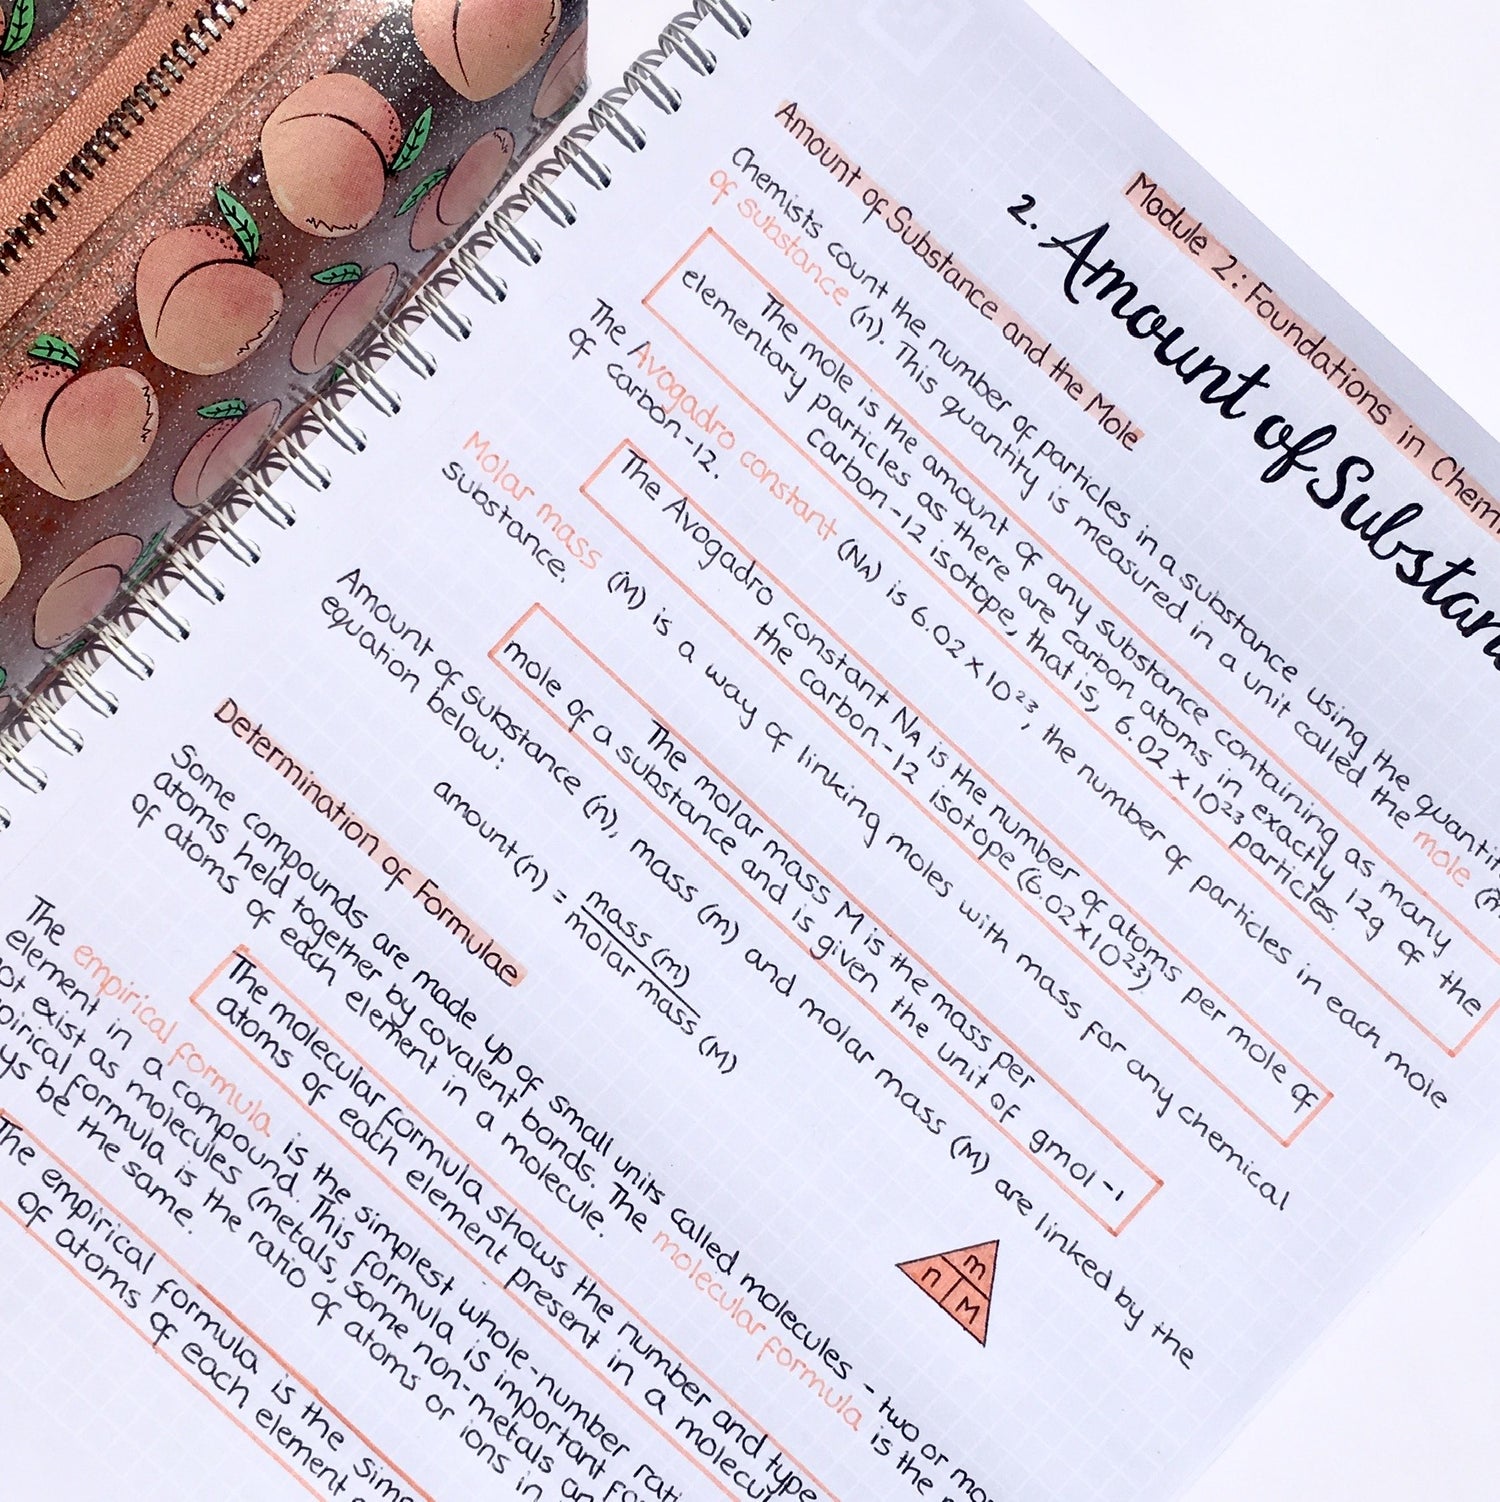 Module 2: Foundations in Chem
2. Amount of Substan
Amount of Substance and the Mole
Chemists count the number of particles in a substance using the quantit
of substance (n). This quantity is measured in a unit called the mole
The mole is the amount of any substance containing as many
elementary particles as there are carbon atoms in exactly 12g of the
Carbon-12 isotope, that is, 6.02 x 10²³ particles.
The Avogadro constant (NA) is 6.02 x 10²³, the number of particles in each mole
of carbon-12.
The Avogadro constant NA is the number of atoms per mole of
the carbon-12 isotope (6.02x10²³).
Molar mass (M) is a way of linking moles with mass for any chemical
substance.
The molar mass M is the mass per
mole of a substance and is given the unit of gmol-1
Amount of substance (n), mass (m) and molar mass (M) are linked by the
equation below:
amount (n) = mass (m)
molar mass (M)
m
n M
Determination of Formulae
Some compounds are made up of small units called molecules - two or mo
atoms held together by covalent bonds. The molecular formula is the
of atoms of each element in a molecule.
The molecular formula shows the number and type
atoms of each element present in a molecul
The empirical formula is the simplest whole-number rati
element in a compound. This formula is important fo
not exist as molecules (metals, some non-metals an
pirical formula is the ratio of atoms or ions in
ys be the same.
The empirical formula is the sim
of atoms of each element